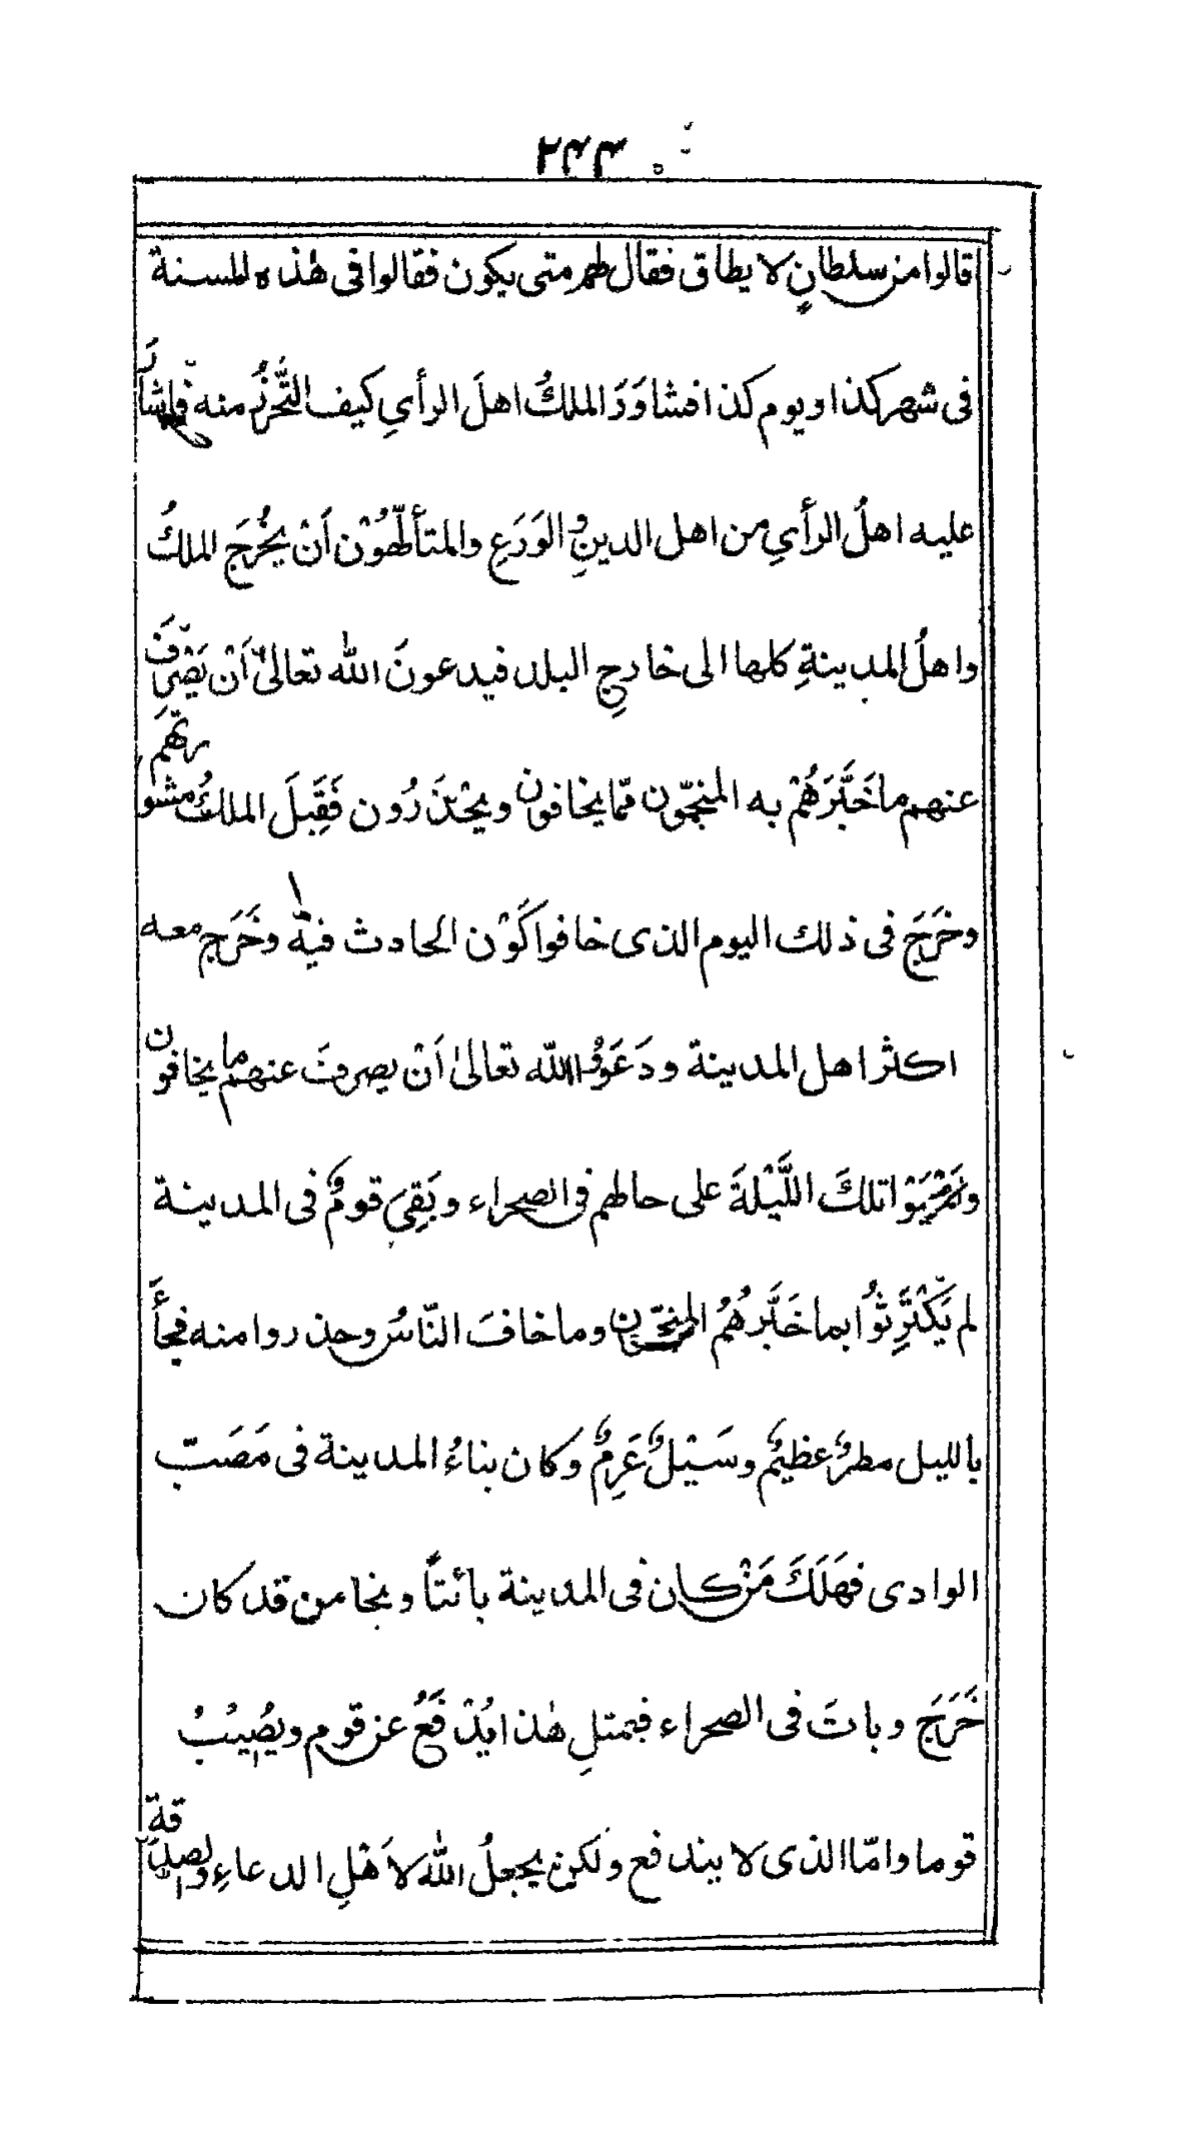 ٢٤٤
قالوا من سلطانٍ لا يطاق فقال لهم متى يكون فقالوا فى هٰذه السنة
فى شهر كذا ويوم كذا فشاوَرَ الملكُ اهلَ الرأىِ كيف التَّحَرُّزُ منه فاشاَر
عليه اهلُ الرأىِ من اهل الدينِ والوَرَعِ والمتألّهُوْن اَنْ يخْرُجَ الملكُ
واهلُ المدينةِ كلها الى خارجِ البلد فيدعونَ الله تعالىٰ اَنْ يَصْرِفَ
عنهم ما خَبَّرَهُمْ به المنجّمون ممّا يخافون ويحْذَرُون فَقَبِلَ الملكُ مشورتهم
وخَرَجَ فى ذلك اليوم الذى خافوا كَوْن الحادث فيه وخَرَج معه
اكثر اهل المدينة ودَعَوُا الله تعالىٰ اَنْ يصرفَ عنهم ما يخافون
وَبَقَوْا تلكَ اللَّيْلَةَ على حالهم فى الصحراء وبَقِىَ قومٌ فى المدينة
لم يَكْتَرِثُوا بما خَبَّرهُمُ المنجّمون وما خافَ النّاسُ وحذروا منه فجأَ
بالليل مطرٌ عظيمٌ وسَيْلٌ عَرِمٌ وكان بناءُ المدينة فى مَصَبّ
الوادى فهَلَكَ مَنْ كان فى المدينة بائتاً ونجا من قد كان
خَرَجَ وباتَ فى الصحراء فبمثلِ هٰذا يُدْفَعُ عن قوم ويُصِيْبُ
قوما وامّا الذى لا يندفع ولكن يجعلُ اللهُ لاَهْلِ الدعاءِ والصدَقة